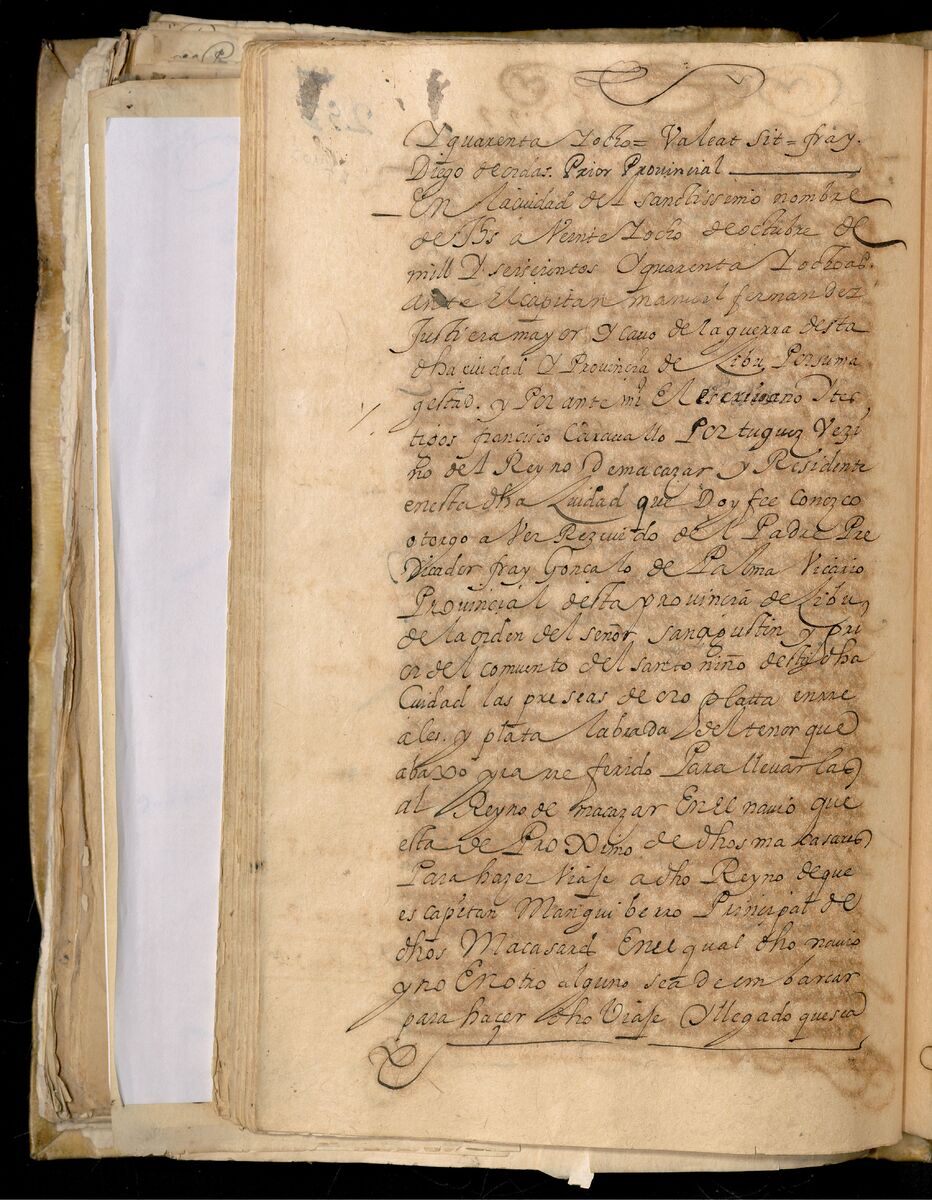 Y quarenta Yocho= Valeat sit= fray.
Diego deordas. Prior Provincial
En laciudad del sanctissimo nombre
de Jhs a Veinte Yocho de octubre de
mill Y seiscientos Y quarenta Yocho as.
ante El capitan manuel fernandez
Justicia mayor Y cavo de la guerra desta
dha ciudad Y Provincia de Zibu, Por su ma
gestad. y Por ante mi El escrivano Y tes
tigos francisco Caravallo Portuguez Vezi
no del Reyno De macazar y Residente
enesta dha Ciudad que Doy fee Conozco
otorgo a Ver Rezevido del Padre Pre
Dicador fray Gonçalo de Palma Vicario
Provincial desta provincia de Zibu,
de la orden del señor san agustin y pri
or del comvento del santo niño desta dha
Ciudad las preseas de oro platta enrre
ales. y plata labrada del tenor que
abaxo yra rre ferido Para llevarlas
al Reyno de macazar En el navio que
esta de Proximo de dhos macasares
Para hazer Viaje a dho Reyno de que
es capitan Manguiberro Principal de
dhos Macasares En el qual dho navio
y no En otro alguno sea de embarcar
para hacer dho Viaje Y llegado que sea